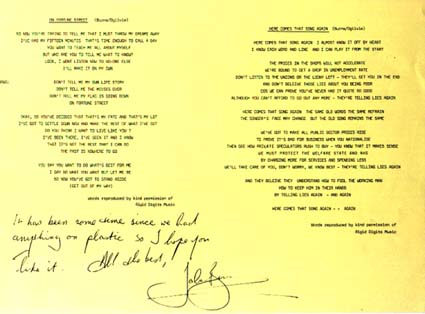 ON FORTUNE STREET (Burns/Ogilvie)
SO NOW YOU'RE TRYING TO TELL ME THAT I MUST THROW MY DREAMS AWAY
I'VE HAD MY FIFTEEN MINUTES THAT'S TIME ENOUGH TO CALL A DAY
YOU WANT TO TEACH ME ALL ABOUT MYSELF
BUT WHO ARE YOU TO TELL ME WHAT TO KNOW
LOOK, I WON'T LISTEN NOW TO NO-ONE ELSE
I'LL MAKE IT ON MY OWN
DON'T TELL ME MY OWN LIFE STORY
DON'T TELL ME THE MOVIES OVER
DON'T TELL ME MY FLAG IS GOING DOWN
ON FORTUNE STREET
OKAY, SO YOU'VE DECIDED THAT THAT'S MY FATE AND THAT'S MY LOT
I'VE GOT TO SETTLE DOWN NOW AND MAKE THE BEST OF WHAT I'VE GOT
DO YOU THINK I WANT TO LIVE LIKE YOU ?
I'VE BEEN THERE, I'VE SEEN IT AND I KNOW
THAT IT'S NOT THE BEST THAT I CAN DO
THE PAST IS NOWHERE TO GO
YOU SAY YOU WANT TO DO WHAT'S BEST FOR ME
I SAY DO WHAT YOU WANT BUT LET ME BE
SO NOW YOU'VE GOT TO STAND ASIDE
(GET OUT OF MY WAY)
Words reproduced by kind permission of
Rigid Digits Music
It has been some time since we had
anything on plastic so I hope you
like it. All the best,
HERE COMES THAT SONG AGAIN (Burns/Ogilvie)
HERE COMES THAT SONG AGAIN I ALMOST KNOW IT OFF BY HEART
I KNOW EACH WORD AND LINE AND I CAN PLAY IT FROM THE START
THE PRICES IN THE SHOPS WILL NOT ACCELERATE
WE'RE BOUND TO GET A DROP IN UNEMPLOYMENT RATE
DON'T LISTEN TO THE UNIONS OR THE LOONY LEFT - THEY'LL GET YOU IN THE END
AND DON'T BELIEVE THOSE LIES ABOUT YOU BEING POOR
COS WE CAN PROVE YOU'VE NEVER HAD IT QUITE SO GOOD
ALTHOUGH YOU CAN'T AFFORD TO GO OUT ANY MORE - THEY'RE TELLING LIES AGAIN
HERE COMES THAT SONG AGAIN THE SAME OLD WORDS THE SAME REFRAIN
THE SINGER'S FACE MAY CHANGE BUT THE OLD SONG REMAINS THE SAME
WE'VE GOT TO MAKE ALL PUBLIC SECTOR PRICES RISE
TO PROVE IT'S BAD FOR BUSINESS WHEN YOU NATIONALISE
THEN SEE HOW PRIVATE SPECULATORS RUSH TO BUY - YOU KNOW THAT IT MAKES SENSE
WE MUST PROTECT THE WELFARE STATE AND NHS
BY CHARGING MORE FOR SERVICES AND SPENDING LESS
WE'LL TAKE CARE OF YOU, DON'T WORRY, WE KNOW BEST - THEY'RE TELLING LIES AGAIN
AND THEY BELIEVE THEY UNDERSTAND HOW TO FOOL THE WORKING MAN
HOW TO KEEP HIM IN THEIR HANDS
BY TELLING LIES AGAIN - AND AGAIN
HERE COMES THAT SONG AGAIN - AGAIN
Words reproduced by kind permission of
Rigid Digits Music